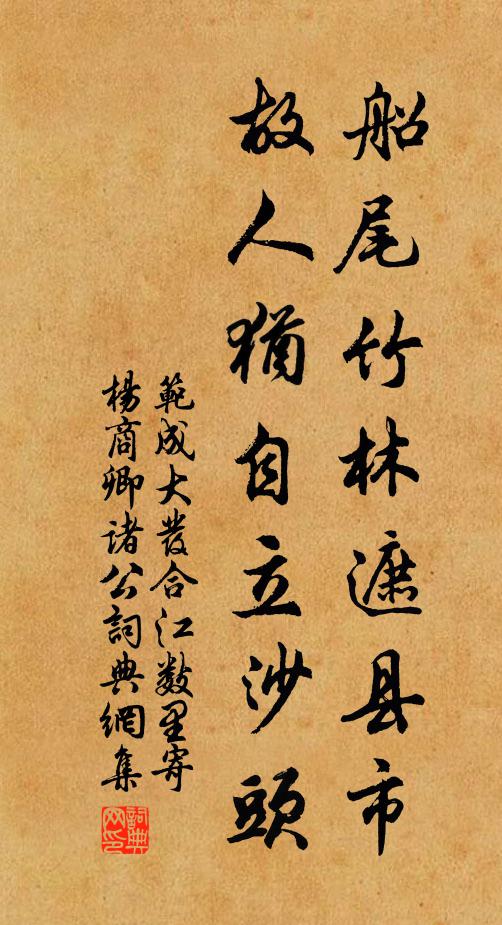 船尾竹林遮县市
故人猶自立沙頭
範成大發合江數里寄
楊商卿諸公詞典網集
詞典网印